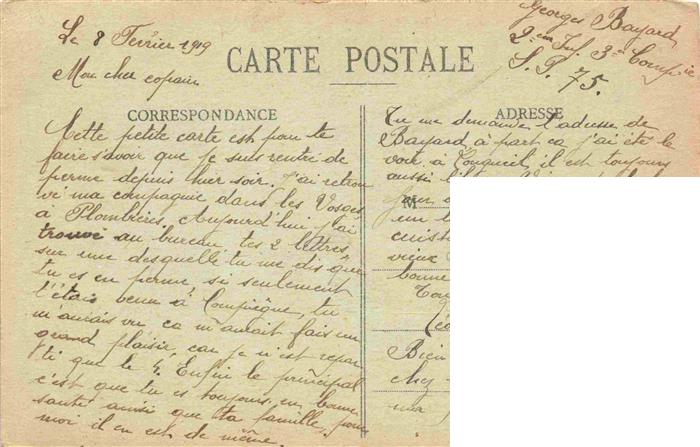 Le 8 Février 1919
Mon cher copain
CARTE POSTALE
Georges Bayard
2em Inf 3e Compie
S.P. 75.
CORRESPONDANCE
Cette petite carte est pour te
faire savoir que je suis rentré de
perme depuis hier soir. J'ai retrou
vé ma compagnie dans les Vosges
à Plombières. Aujourd'hui j'ai
trouvé au bureau tes 2 lettres,
sur une desquelle tu me dis que
tu es en perme, si seulement
t'étais venu à Compiègne, tu
m'aurais vu, ca m'aurait fais un
grand plaisir, car je n'est repar
ti que le 4. Enfin le principal
c'est que tu es toujours en bonne
santé ainsi que ta famille, pour
moi il en est de même.
ADRESSE
Tu me demandes l'adresse de
Bayard, à part ca j'ai été le
voir à Longueil, il est toujours
aussi
M
un
cuist
vieux
bonne
Bien
chez
ma